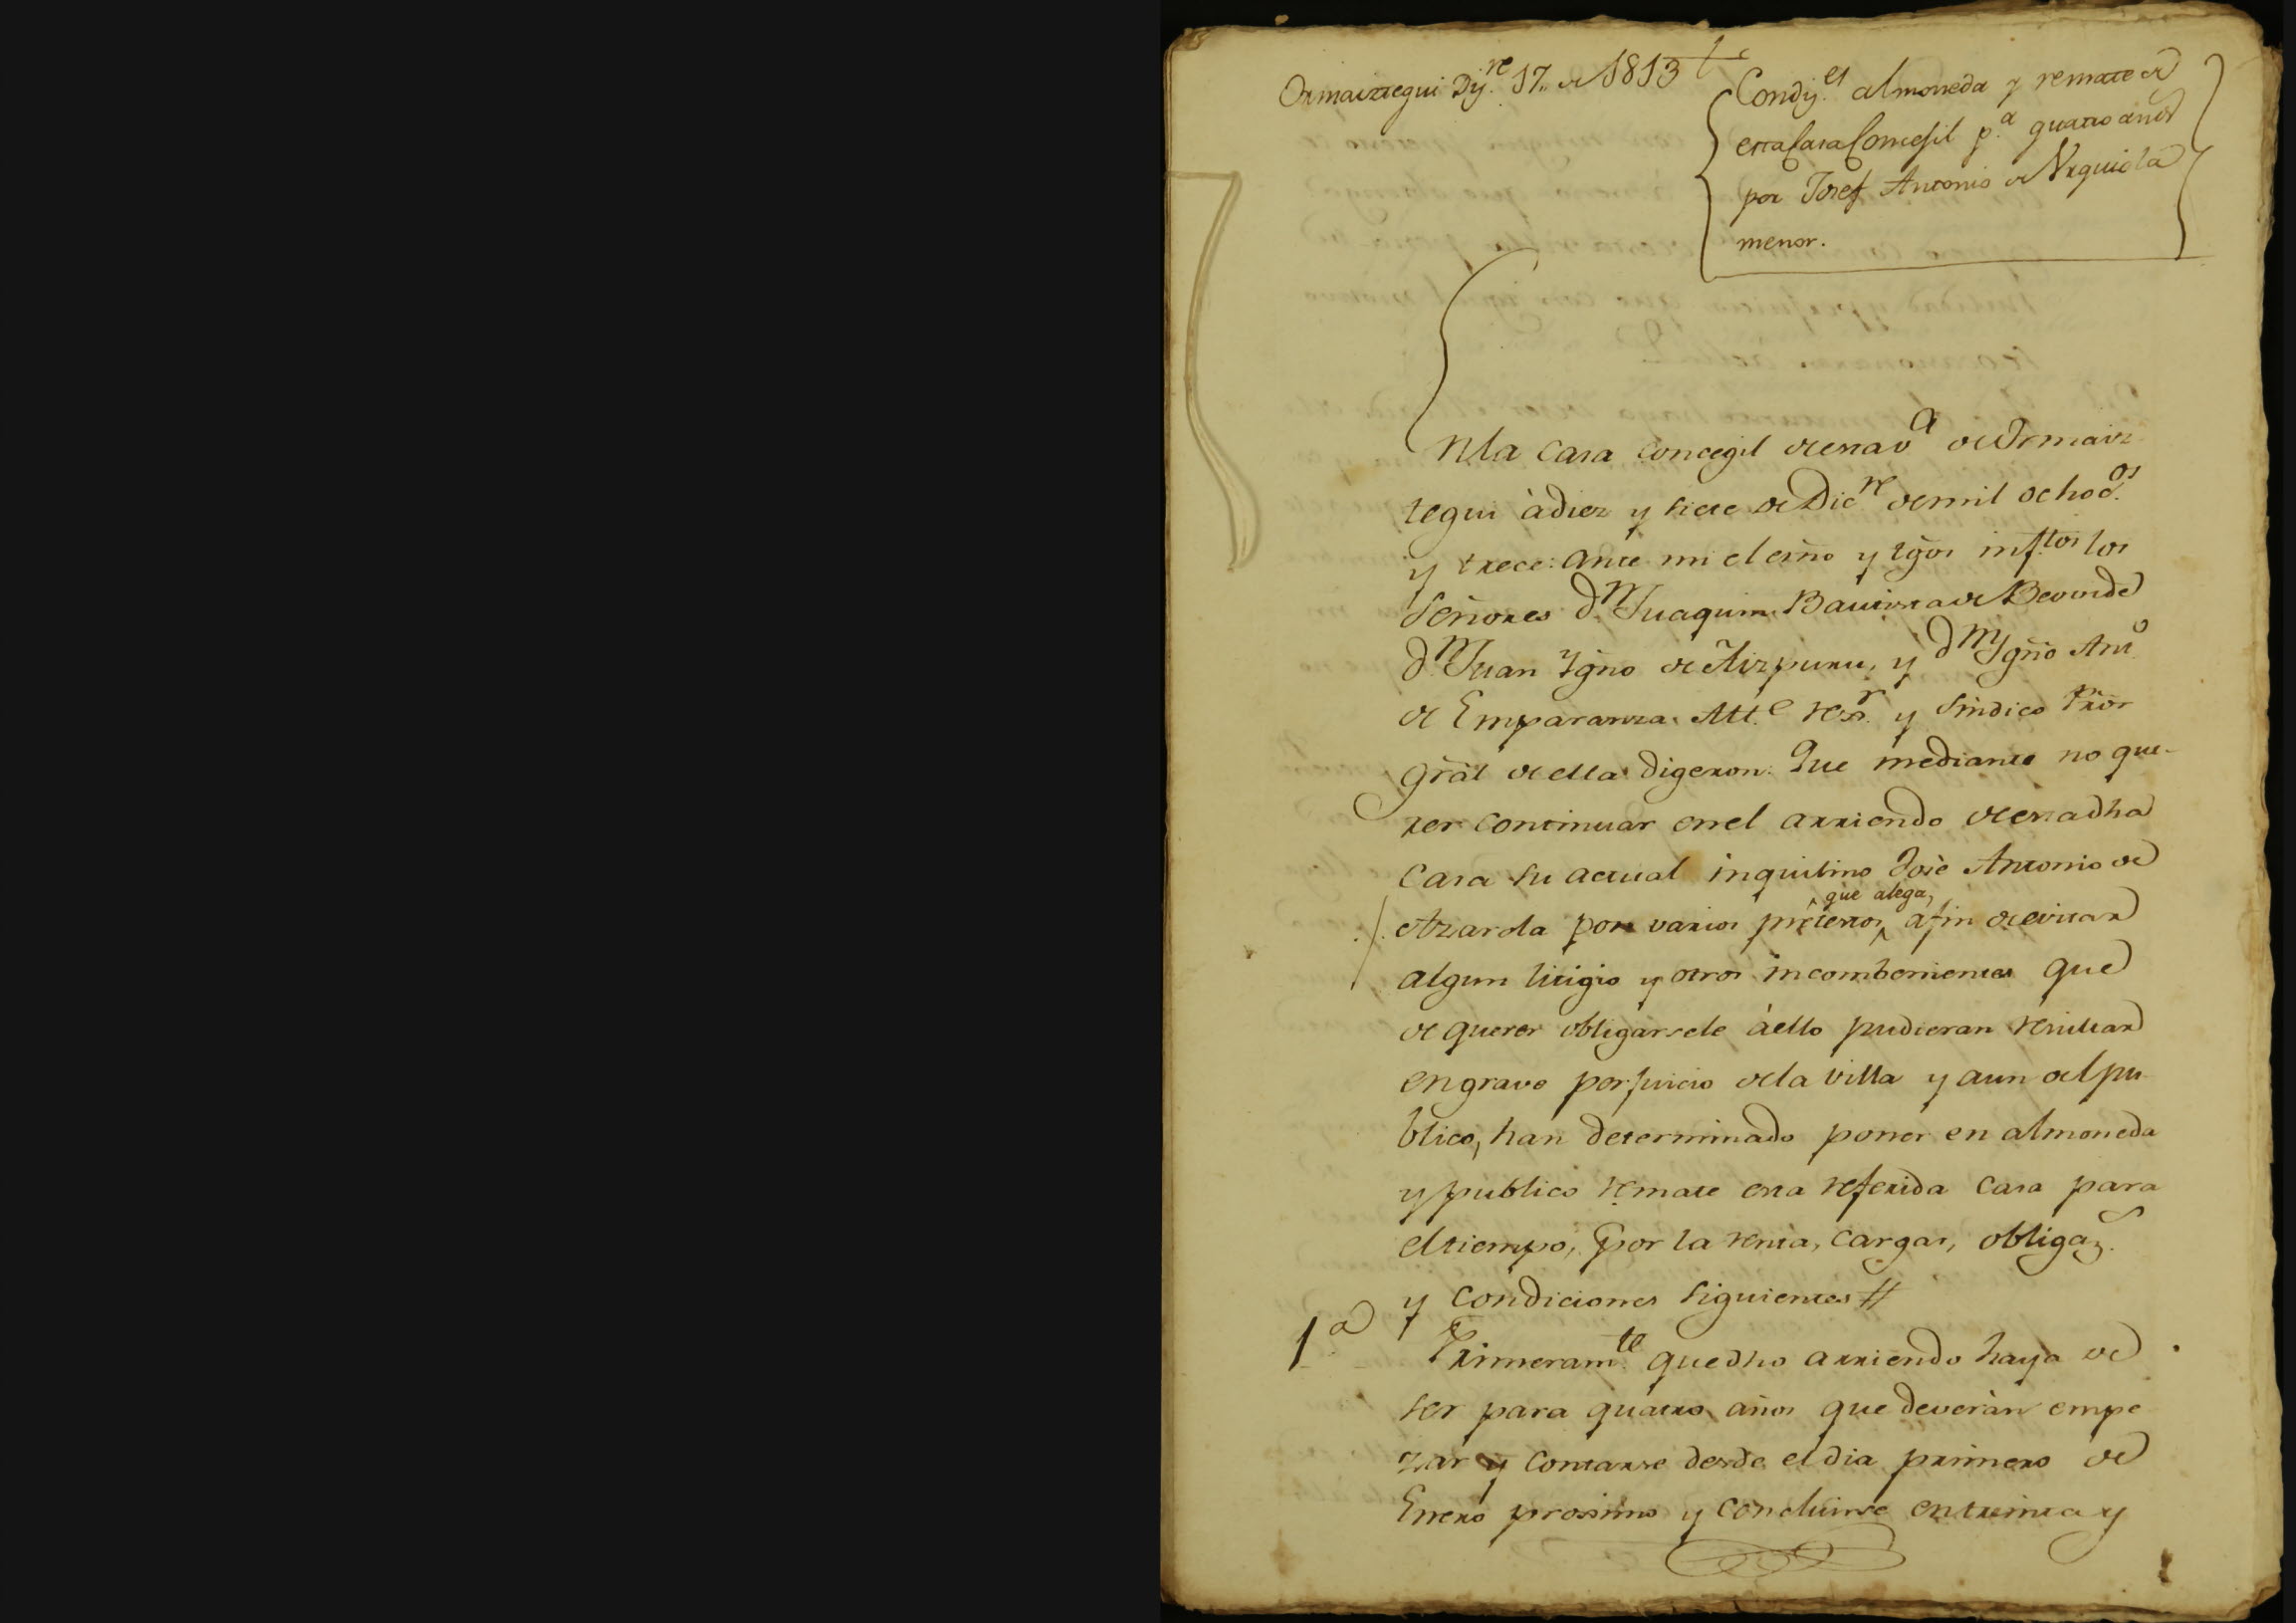 Ormaiztegui Dz.re 17,, de 1813
Condiz.es almoneda y remate de
esta Casa Concejil p.a quatro años
por Josef Antonio de Urquiola
menor.
En la casa concegil de esta v.a de Ormaiz-
tegui à diez y siete de Dic.re de mil ochoc.os
y trece: ante mi el esño y tgos infr.tos los
Señores d.n Juaquin Bautista de Beounde
d.n Juan Ygño de Aizpuru, y d.n Ygño Ant.o
de Emparanza Alc.e rex.r y Sindico Pror
gràl de ella digeron: Que mediante no que-
rer continuar en el arriendo de esta dha
casa su actual inquilino José Antonio de
Azarola por varios pretextos que alega, afin de evitar
algun litigio y otros incombenientes que
de querer obligarsele àello pudieran resultar
en grave perjuicio de la villa y aun del pu-
blico, han determinado poner en almoneda
y publico remate esta referida casa para
el tiempo, por la renta, cargas, obligaz.s
y condiciones siguientes //
1.a Primeram.te que dho arriendo haya de
ser para quatro años que deveràn empe
zar y contarse desde el dia primero de
Enero prosimo y concluirse en treinta y